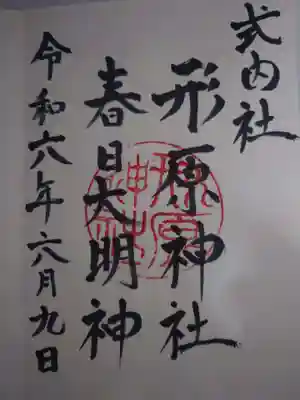 式内社
形原神社
春日大明神
令和六年六月九日
形原神社